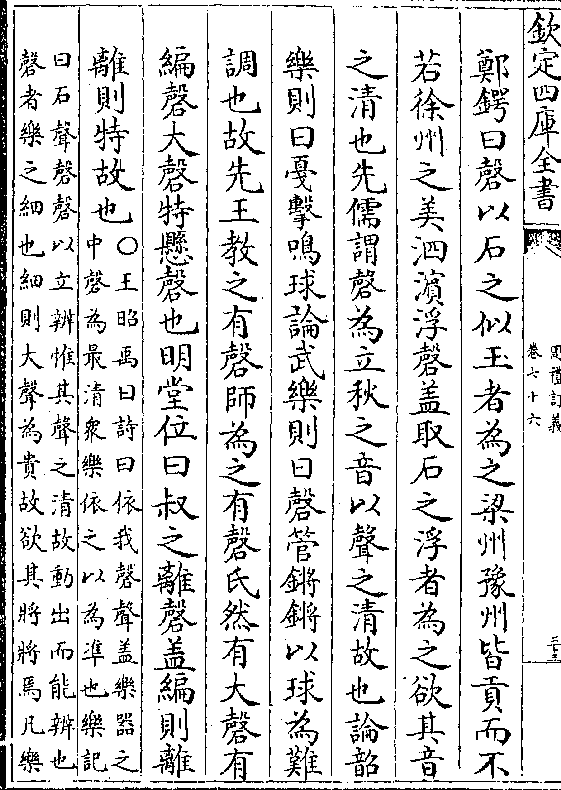 欽定四庫全書
周禮訂義
卷七十六
三十三
鄭鍔曰磬以石之似玉者為之梁州豫州皆貢而不
若徐州之美泗濵浮磬盖取石之浮者為之欲其音
之清也先儒謂磬為立秋之音以聲之清故也論韶
樂則曰戛擊鳴球論武樂則曰磬管鏘鏘以球為難
調也故先王教之有磬師為之有磬氏然有大磬有
編磬大磬特懸磬也明堂位曰叔之離磬盖編則離
離則特故也〇王昭禹曰詩曰依我磬聲盖樂器之
中磬為最清衆樂依之以為準也樂記
曰石聲磬磬以立辨惟其聲之清故動出而能辨也
磬者樂之細也細則大聲為貴故欲其將將焉凡樂